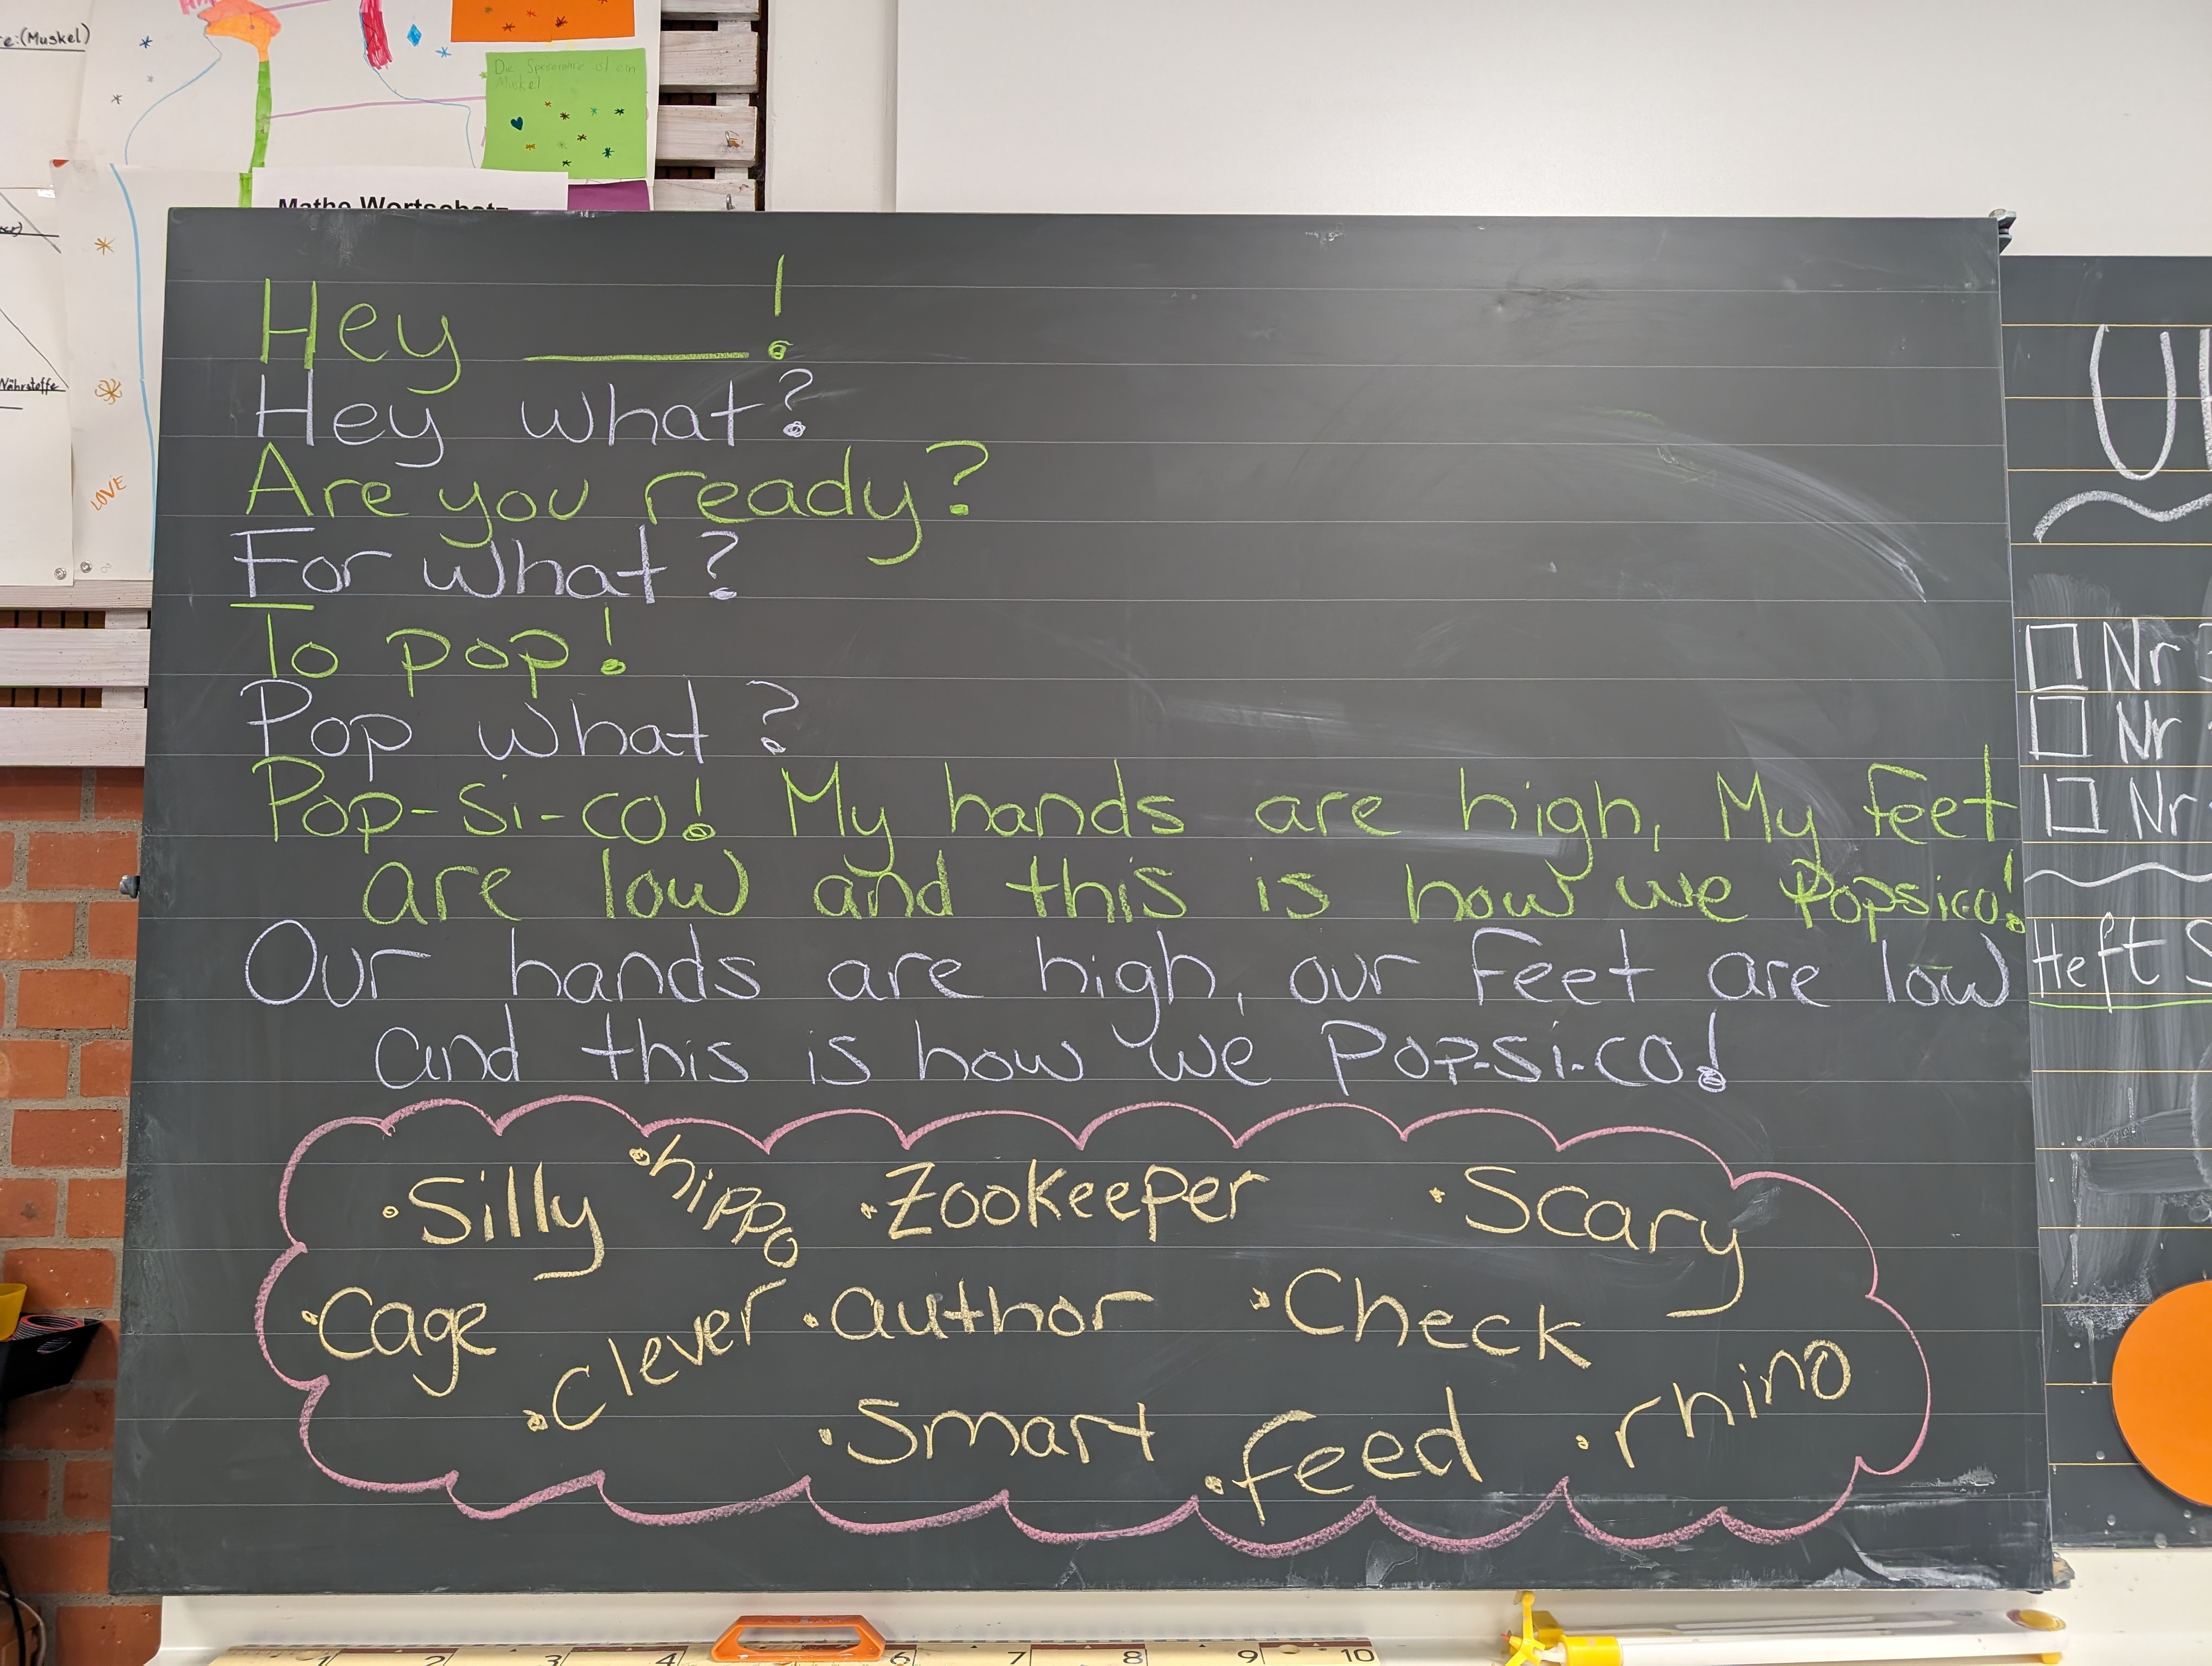 e:(Muskel)
Die Speiseröhre ist ein
Muskel
Mathe Wortschatz
Nährstoffe
LOVE
Hey ________!
Hey what?
Are you ready?
For what?
To pop!
Pop what?
Pop-si-co! My hands are high, My feet
are low and this is how we Popsico!
Our hands are high, our feet are low
and this is how we Pop-si-co!
• Silly • hippo • Zookeeper • Scary
• Cage • Clever • author • Check
• Smart • feed • rhino
Nr
Nr
Nr
Heft S
1 2 3 4 6 7 8 9 10